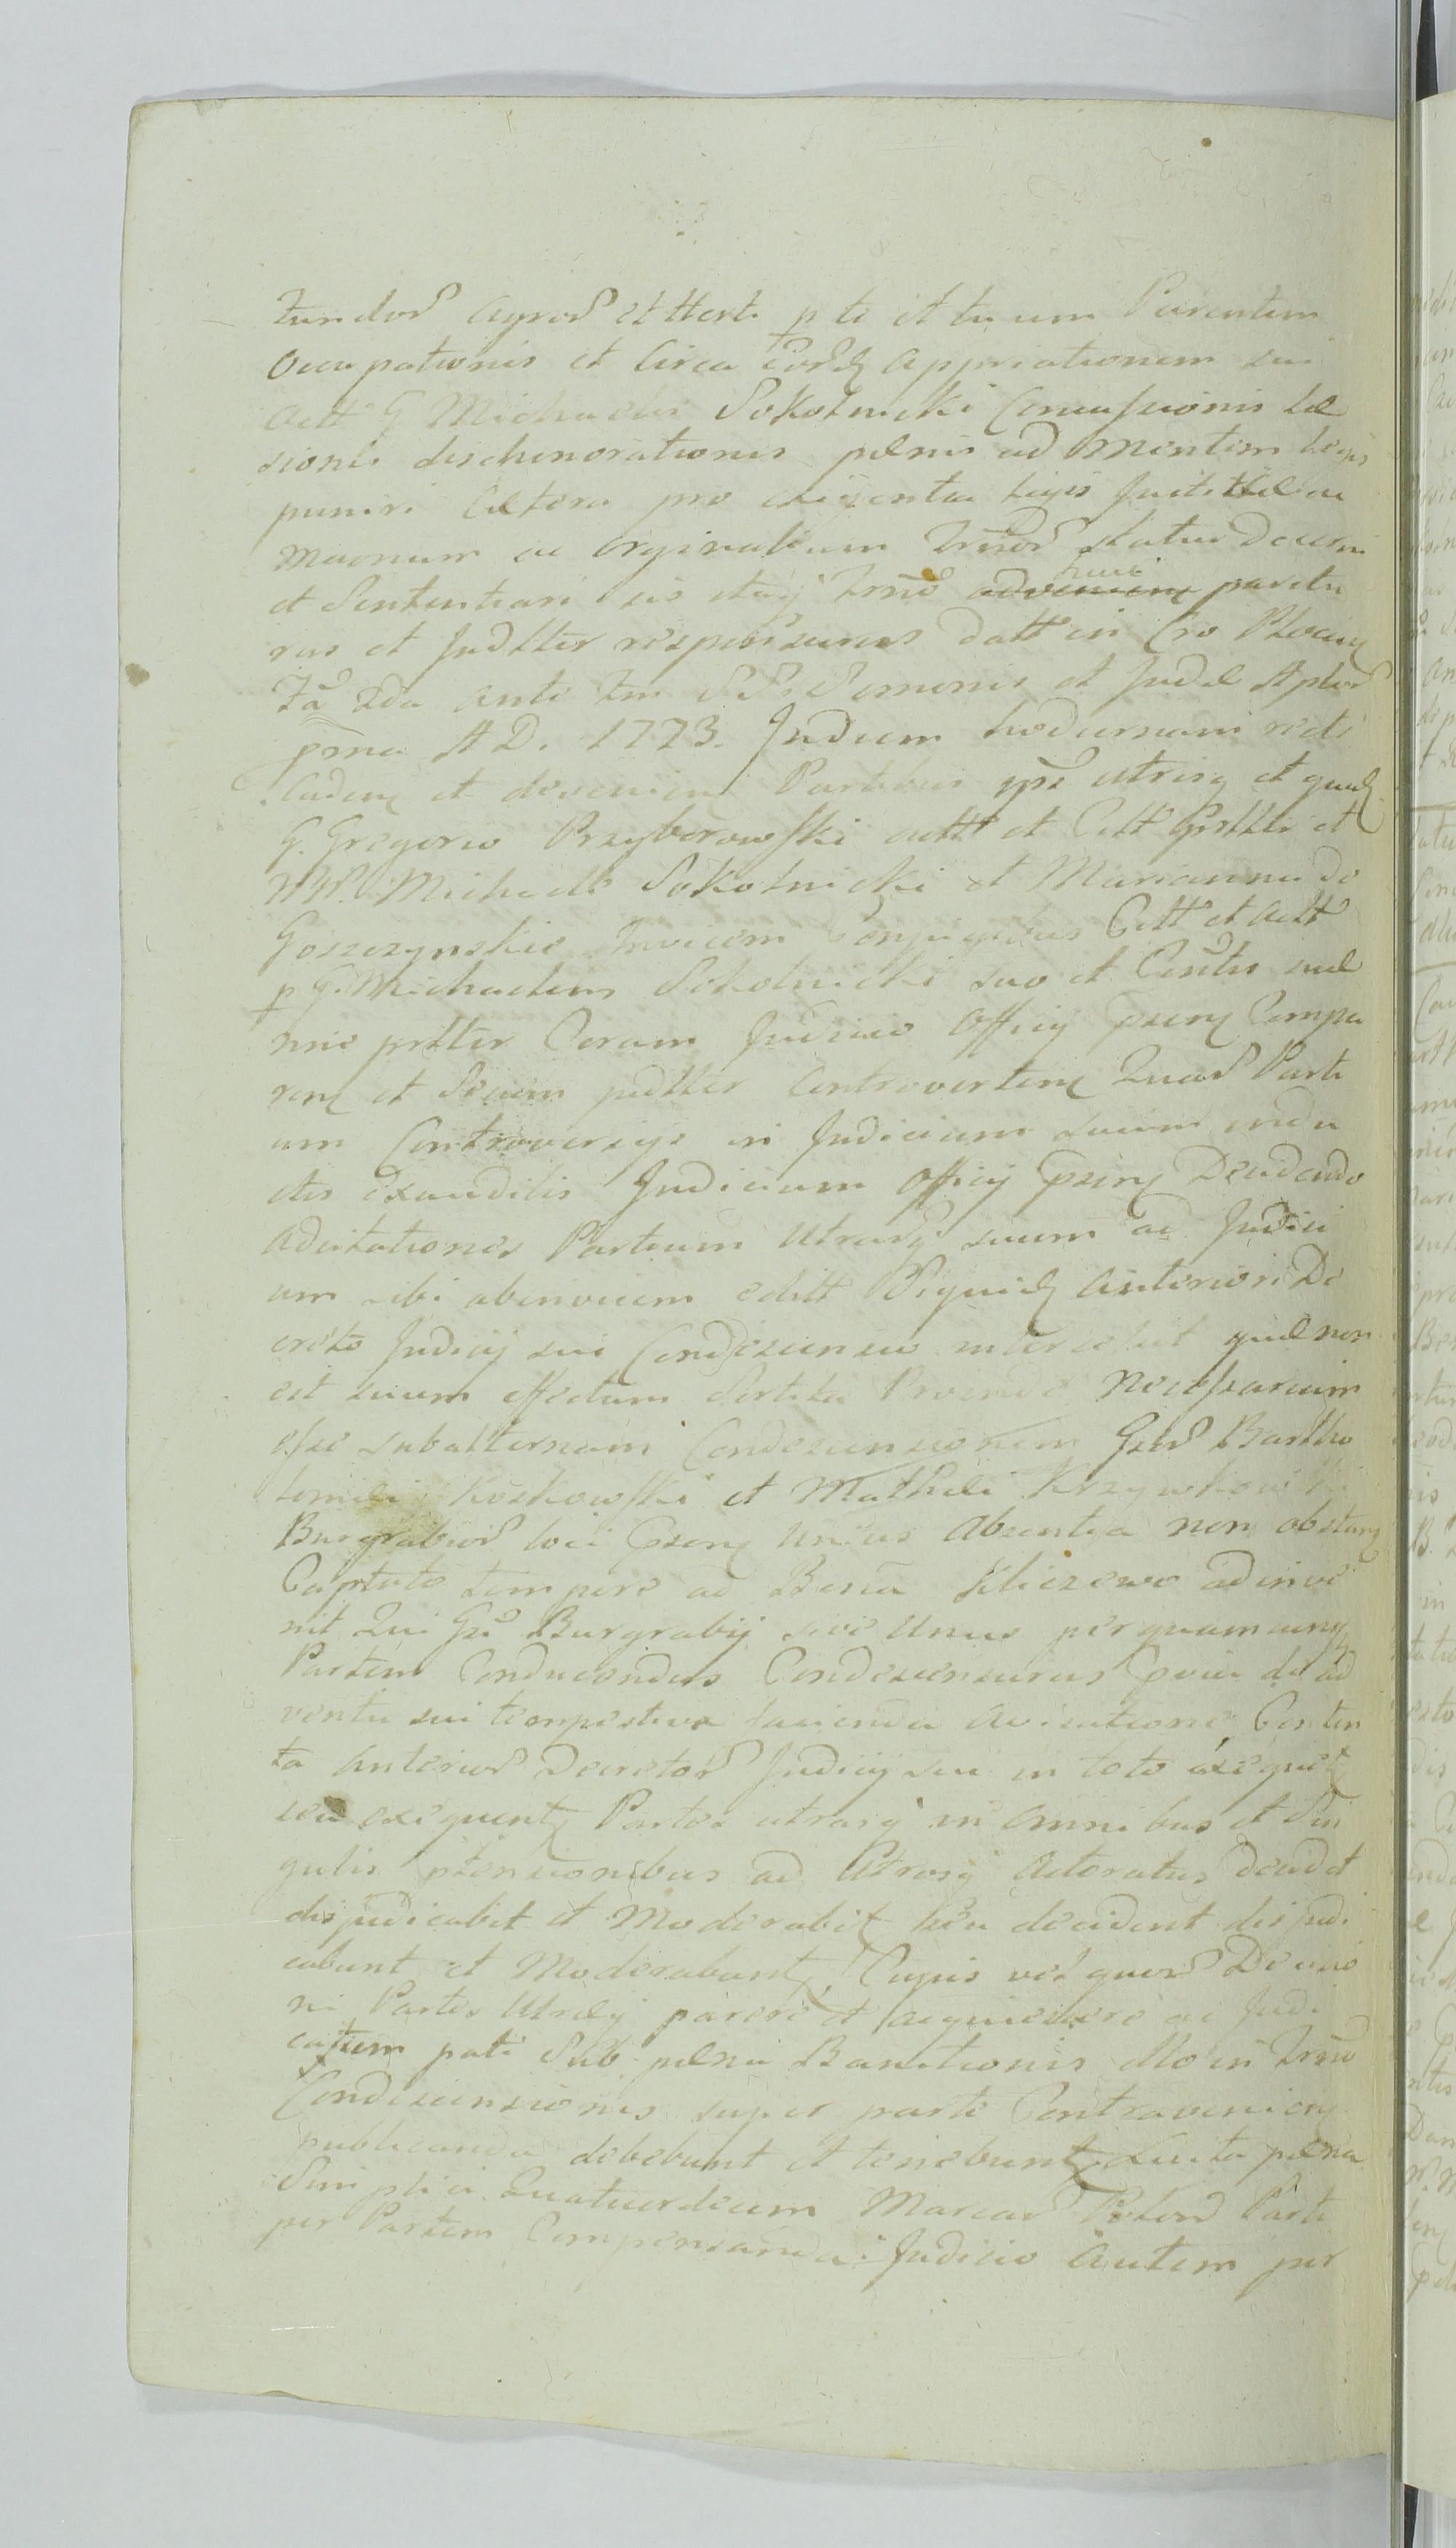 tundor Agror et Horti p te et tuum Parentem
Occupationis et Circa eord appriationem sui
Actt G Michaelis Sokolnicki Concussionis Læ
sionis dischonorationis pœnis ad mentem Legis
puniri Cætera pro exigentia Legis Justitiæ ac
Munimen ac orginalium Trnor statui Decerni
et Sententiari sis itaq Trno huic paritu
rus et Judltter responsurus Datt in Cro Plocen
Fa 2da ante Fm SS. Simonis et Judæ Aplor
pma A D. 1773. Judium hodiernam recti
Caden et devenien Partibus ipis utrisq et quid
G. Gregorio Przyborowski actt et Citt Gnltti et
MM. Michaele Sokolnicki et Marianna de
Goszczynskie Invicem Conjugibus Citt et Actt
p G. Michaelem Sokolnicki suo et Consrtis suæ
nne prltter Coram Judicio Officij psenq Compa
ren et Secum judltter Controverten Quar Parti
um Controversijs in Judicium suum indu
ctis Exauditis Judicium Officij psenq Decidendo
Adcitationes Partium Utrarq suum ad Judici
um sibi abinvicem editt Siquid Anteriori De
creto Judicij sui Condescensio intercessit quæ non
est suum effectum Sortita Proinde Necessarium
esse subalternam Condescensionem Gsor Bartho
lomæi Koskowski et Mathæi Krzywkowski
Burgrabior loci psenq Unius Absentia non obstan
Captato tempore ad Bona Kliczewo adinve
nit Qui Gsi Burgrabij sive Unus per quamcunq
Partem Conducendus Condescensurus pvia de ad
ventu sui tempestiva facienda Avisatione, Conten
ta Anterior Decretor Judicij sui in toto exequet
seu exequent Partes utrasq in omnibus et Sin
gulis ptensionibus ad Utrosq Actoratus decidet
disjudicabit et Moderabit seu decident disjudi
cabunt et Moderabunt, Cujus vel quor Decisio
ni Partes Utræq parere et acquiescere ac Judi
catum pati Sub pœna Banitionis in Trno
Condescensionis super parte Contravenien
publicanda debebunt et tenebunt Luita pœna
Simplici Quatuordecim Marcar Polon Parti
per Partem Compensanda. Judicio Autem per